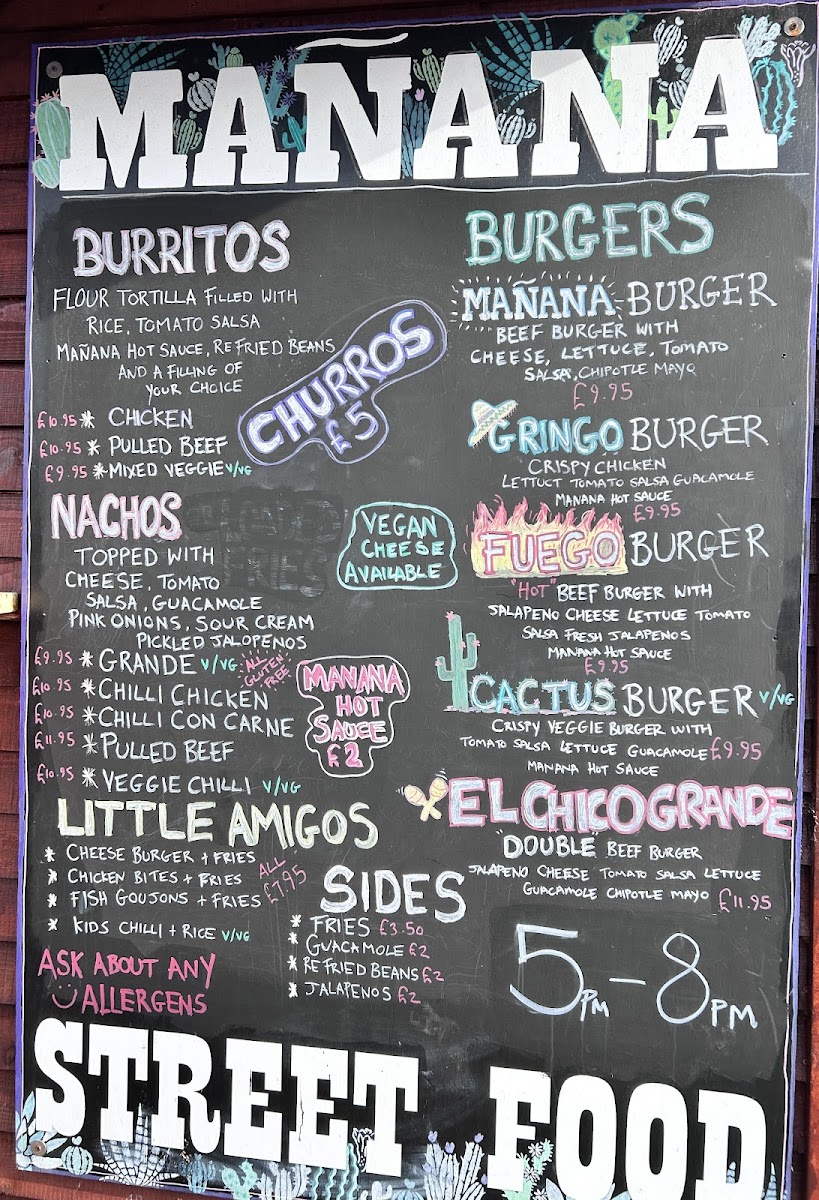 MAÑANA
BURRITOS
FLOUR TORTILLA FILLED WITH
RICE, TOMATO SALSA
MAÑANA HOT SAUCE, REFRIED BEANS
AND A FILLING OF
YOUR CHOICE
£10.95 * CHICKEN
£10.95 * PULLED BEEF
£9.95 * MIXED VEGGIE V/VG
CHURROS
£5
NACHOS
TOPPED WITH
CHEESE, TOMATO
SALSA, GUACAMOLE
PINK ONIONS, SOUR CREAM
PICKLED JALOPENOS
£9.95 * GRANDE V/VG
ALL
GLUTEN
FREE
£10.95 * CHILLI CHICKEN
£10.95 * CHILLI CON CARNE
£11.95 * PULLED BEEF
£10.95 * VEGGIE CHILLI V/VG
VEGAN
CHEESE
AVAILABLE
MANANA
HOT
SAUCE
£2
LITTLE AMIGOS
* CHEESE BURGER + FRIES
* CHICKEN BITES + FRIES
* FISH GOUJONS + FRIES
* KIDS CHILLI + RICE V/VG
ALL
£7.95
ASK ABOUT ANY
ALLERGENS
SIDES
* FRIES £3.50
* GUACAMOLE £2
* REFRIED BEANS £2
* JALAPENOS £2
BURGERS
MAÑANA-BURGER
BEEF BURGER WITH
CHEESE, LETTUCE, TOMATO
SALSA, CHIPOTLE MAYO
£9.95
GRINGO BURGER
CRISPY CHICKEN
LETTUCT TOMATO SALSA GUACAMOLE
MANANA HOT SAUCE
£9.95
FUEGO BURGER
"HOT" BEEF BURGER WITH
JALAPENO CHEESE LETTUCE TOMATO
SALSA FRESH JALAPENOS
MANANA HOT SAUCE
£9.95
CACTUS BURGER V/VG
CRISPY VEGGIE BURGER WITH
TOMATO SALSA LETTUCE GUACAMOLE £9.95
MANANA HOT SAUCE
EL CHICO GRANDE
"DOUBLE BEEF BURGER
JALAPENO CHEESE TOMATO SALSA LETTUCE
GUACAMOLE CHIPOTLE MAYO £11.95
5PM - 8PM
STREET FOOD